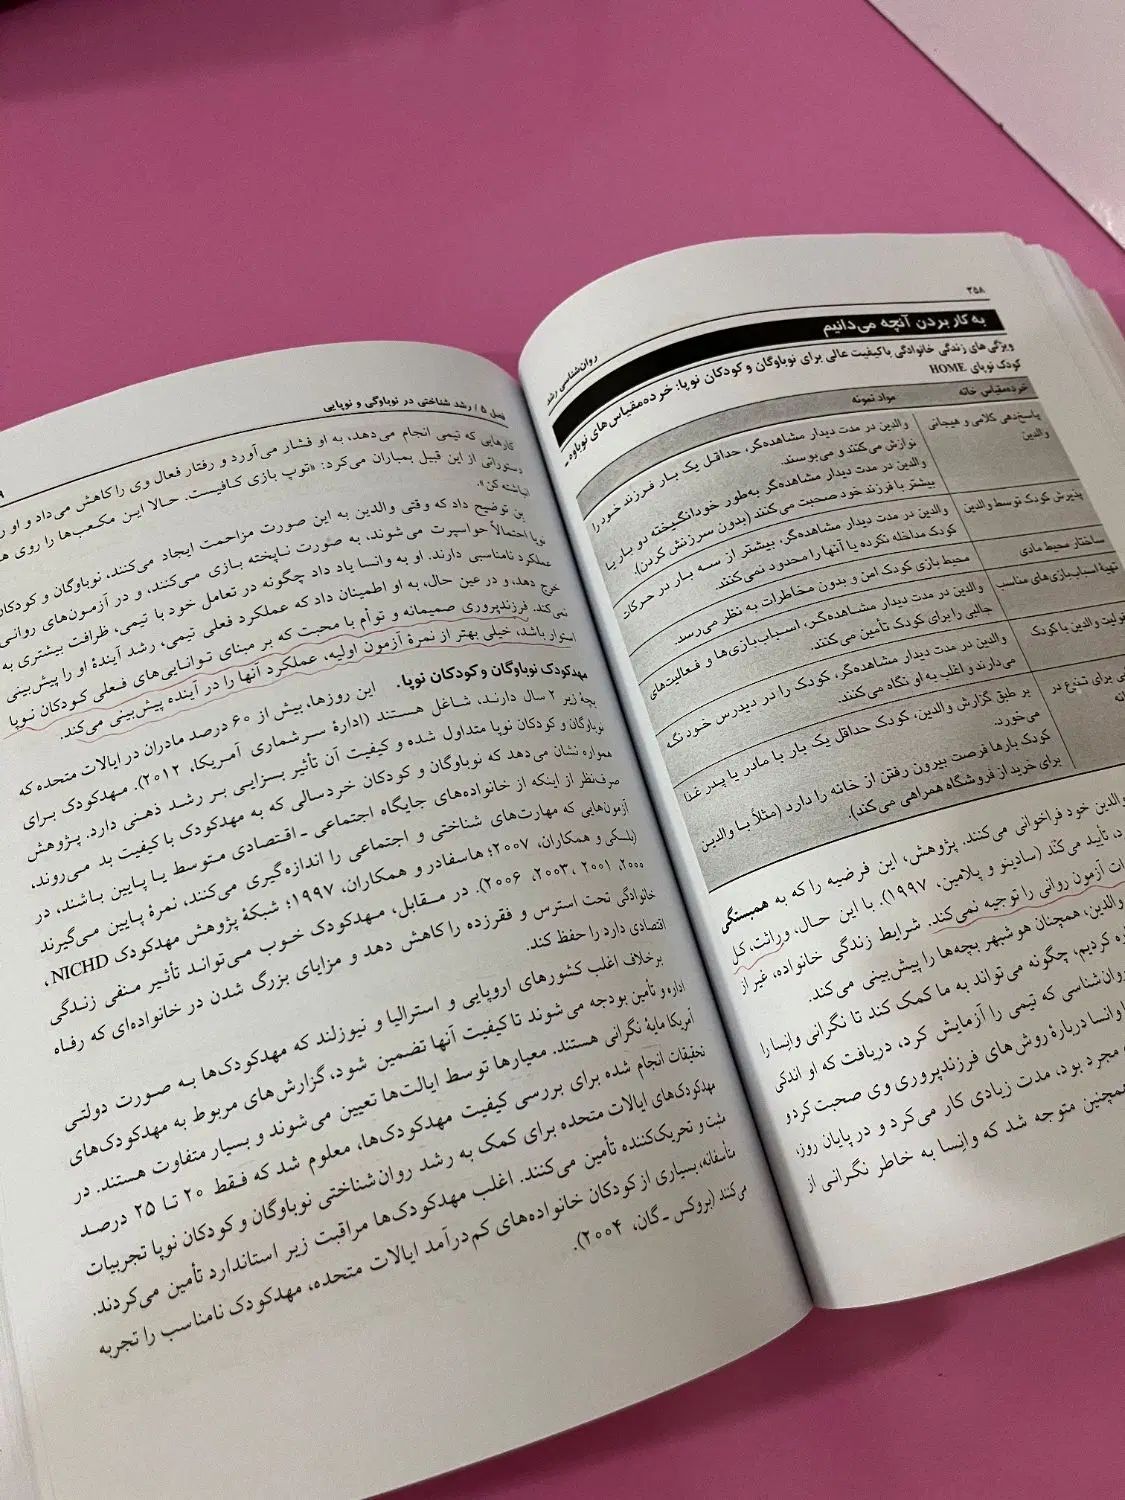 ۳۵۸
روان‌شناسی رشد
به کار بردن آنچه می‌دانیم
ویژگی‌های زندگی خانوادگی با کیفیت عالی برای نوباوگان و کودکان نوپا: خرده‌مقیاس‌های نوباوه ـ
کودک نوپای HOME
خرده‌مقیاس خانه
مواد نمونه
پاسخ‌دهی کلامی و هیجانی
والدین
والدین در مدت دیدار مشاهده‌گر، حداقل یک بار فرزند خود را
نوازش می‌کنند و می‌بوسند.
والدین در مدت دیدار مشاهده‌گر به‌طور خودانگیخته دو بار یا
بیشتر با فرزند خود صحبت می‌کنند (بدون سرزنش کردن).
پذیرش کودک توسط والدین
والدین در مدت دیدار مشاهده‌گر، بیشتر از سه بار در حرکات
کودک مداخله نکرده یا آنها را محدود نمی‌کنند.
ساختار محیط مادی
محیط بازی کودک امن و بدون مخاطرات به نظر می‌رسد.
تهیهٔ اسباب‌بازی‌های مناسب
والدین در مدت دیدار مشاهده‌گر، اسباب‌بازی‌ها و فعالیت‌های
جالبی را برای کودک تأمین می‌کنند.
والدین با کودک
والدین در مدت دیدار مشاهده‌گر، کودک را در دیدرس خود نگه
می‌دارند و اغلب به او نگاه می‌کنند.
برای تنوع در
بر طبق گزارش والدین، کودک حداقل یک بار با مادر یا پدر غذا
می‌خورد.
کودک بارها فرصت بیرون رفتن از خانه را دارد (مثلاً با والدین
برای خرید از فروشگاه همراهی می‌کند).
والدین خود فراخوانی می‌کنند. پژوهش، این فرضیه را که به همبستگی
تأیید می‌کند (سادینو و پلامین، ۱۹۹۷). با این حال، وراثت، کل
آزمون روانی را توجیه نمی‌کند. شرایط زندگی خانواده، غیر از
والدین، همچنان هوشبهر بچه‌ها را پیش‌بینی می‌کند.
کردیم، چگونه می‌تواند به ما کمک کند تا نگرانی وانسا را
روان‌شناسی که تیمی را آزمایش کرد، دریافت که او اندکی
وانسا دربارهٔ روش‌های فرزندپروری وی صحبت کرد و
مجرد بود، مدت زیادی کار می‌کرد و در پایان روز،
همچنین متوجه شد که وانسا به خاطر نگرانی از
فصل ۵ / رشد شناختی در نوباوگی و نوپایی
کارهایی که تیمی انجام می‌دهد، به او فشار می‌آورد و رفتار فعال وی را کاهش می‌داد و او را
دستوراتی از این قبیل بمباران می‌کرد: «توپ بازی کافیست. حالا این مکعب‌ها را روی هم
انباشته کن».
بن توضیح داد که وقتی والدین به این صورت مزاحمت ایجاد می‌کنند، نوباوگان و کودکان
نوپا احتمالاً حواسپرت می‌شوند، به صورت ناپخته بازی می‌کنند، و در آزمون‌های روانی
عملکرد نامناسبی دارند. او به وانسا یاد داد چگونه در تعامل خود با تیمی، ظرافت بیشتری به
خرج دهد، و در عین حال، به او اطمینان داد که عملکرد فعلی تیمی، رشد آیندهٔ او را پیش‌بینی
نمی‌کند. فرزندپروری صمیمانه و توأم با محبت که بر مبنای توانایی‌های فعلی کودکان نوپا
استوار باشد، خیلی بهتر از نمرهٔ آزمون اولیه، عملکرد آنها را در آینده پیش‌بینی می‌کند.
مهدکودک نوباوگان و کودکان نوپا. این روزها، بیش از ۶۰ درصد مادران در ایالات متحده که
بچه زیر ۲ سال دارند، شاغل هستند (ادارهٔ سرشماری آمریکا، ۲۰۱۲). مهدکودک برای
نوباوگان و کودکان نوپا متداول شده و کیفیت آن تأثیر بسزایی بر رشد ذهنی دارد. پژوهش
همواره نشان می‌دهد که نوباوگان و کودکان خردسالی که به مهدکودک با کیفیت بد می‌روند،
صرف‌نظر از اینکه از خانواده‌های جایگاه اجتماعی ـ اقتصادی متوسط یا پایین باشند، در
آزمون‌هایی که مهارت‌های شناختی و اجتماعی را اندازه‌گیری می‌کنند، نمرهٔ پایین می‌گیرند
(بلسکی و همکاران، ۲۰۰۷؛ هاسفادر و همکاران، ۱۹۹۷؛ شبکهٔ پژوهش مهدکودک NICHD،
۲۰۰۰، ۲۰۰۱، ۲۰۰۳، ۲۰۰۶). در مقابل، مهدکودک خوب می‌تواند تأثیر منفی زندگی
خانوادگی تحت استرس و فقرزده را کاهش دهد و مزایای بزرگ شدن در خانواده‌ای که رفاه
اقتصادی دارد را حفظ کند.
برخلاف اغلب کشورهای اروپایی و استرالیا و نیوزلند که مهدکودک‌ها به صورت دولتی
اداره و تأمین بودجه می‌شوند تا کیفیت آنها تضمین شود، گزارش‌های مربوط به مهدکودک‌های
آمریکا مایهٔ نگرانی هستند. معیارها توسط ایالت‌ها تعیین می‌شوند و بسیار متفاوت هستند. در
تحقیقات انجام شده برای بررسی کیفیت مهدکودک‌ها، معلوم شد که فقط ۲۰ تا ۲۵ درصد
مهدکودک‌های ایالات متحده برای کمک به رشد روان‌شناختی نوباوگان و کودکان نوپا تجربیات
مثبت و تحریک‌کننده تأمین می‌کنند. اغلب مهدکودک‌ها مراقبت زیر استاندارد تأمین می‌کردند.
متأسفانه، بسیاری از کودکان خانواده‌های کم‌درآمد ایالات متحده، مهدکودک نامناسب را تجربه
می‌کنند (بروکس ـ گان، ۲۰۰۴).